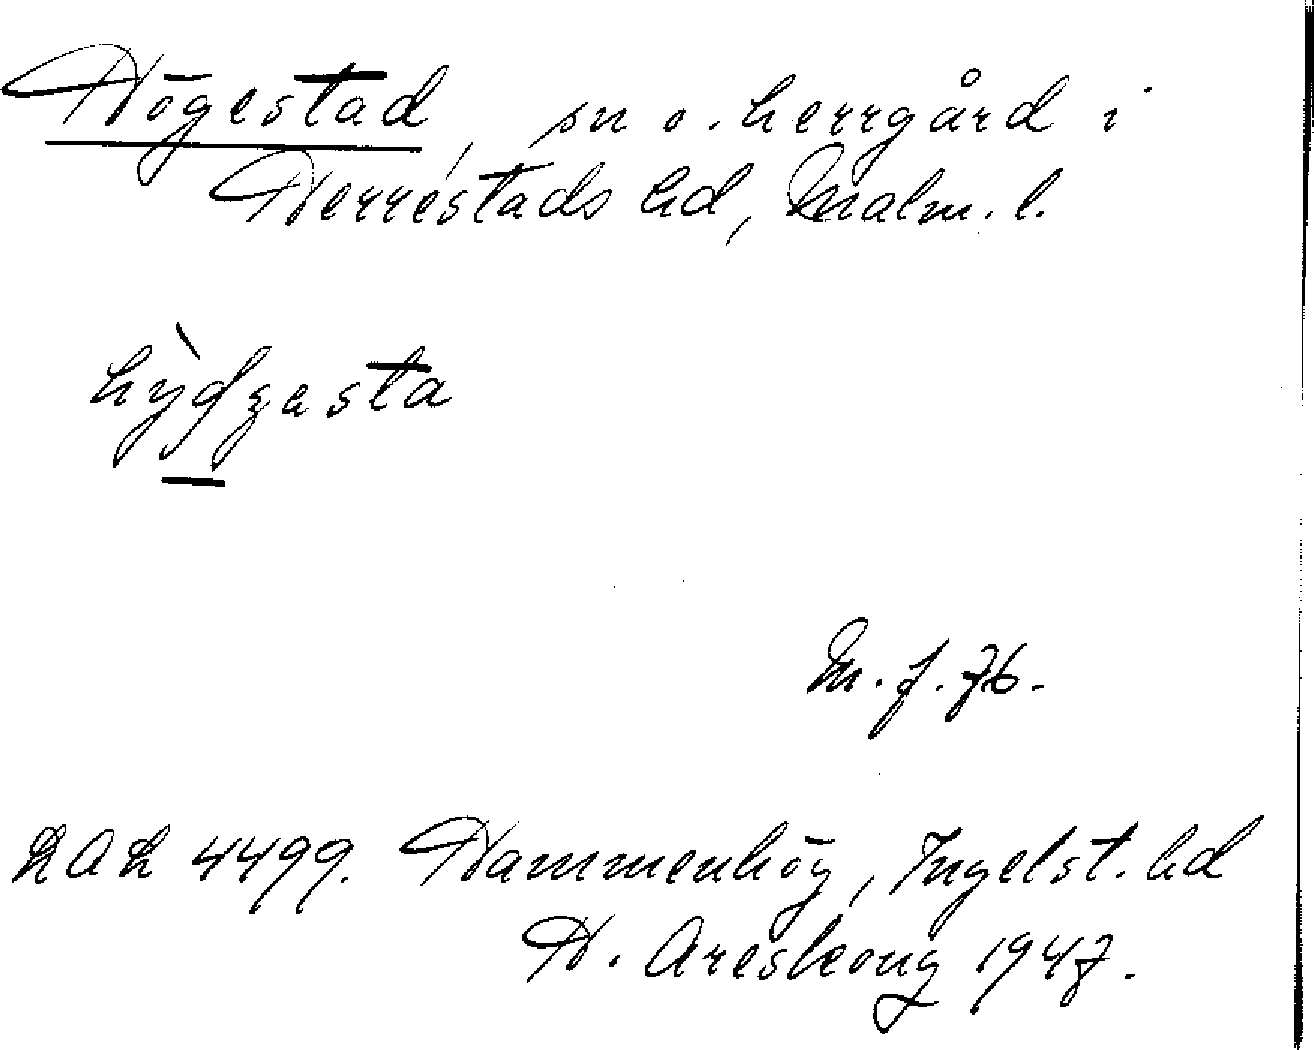 Högestad, sn o. herrgård i
Herrestads hd, Malm. l.
M. f. 76.
LAL 4499. Hammenhög, Ingelst. hd
H. Areskoug 1947.